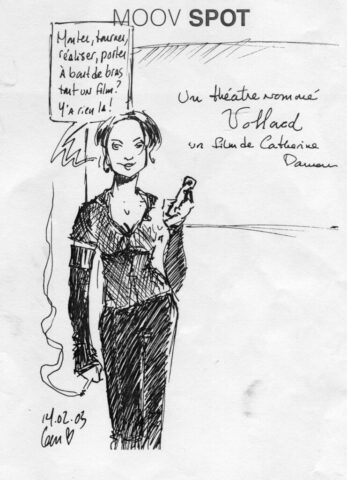 MOOV SPOT
Monter, tourner,
réaliser, porter
à bout de bras
tout un film?
Y'a rien là!
Un théâtre nommé
Vollard
un film de Catherine
14.02.03